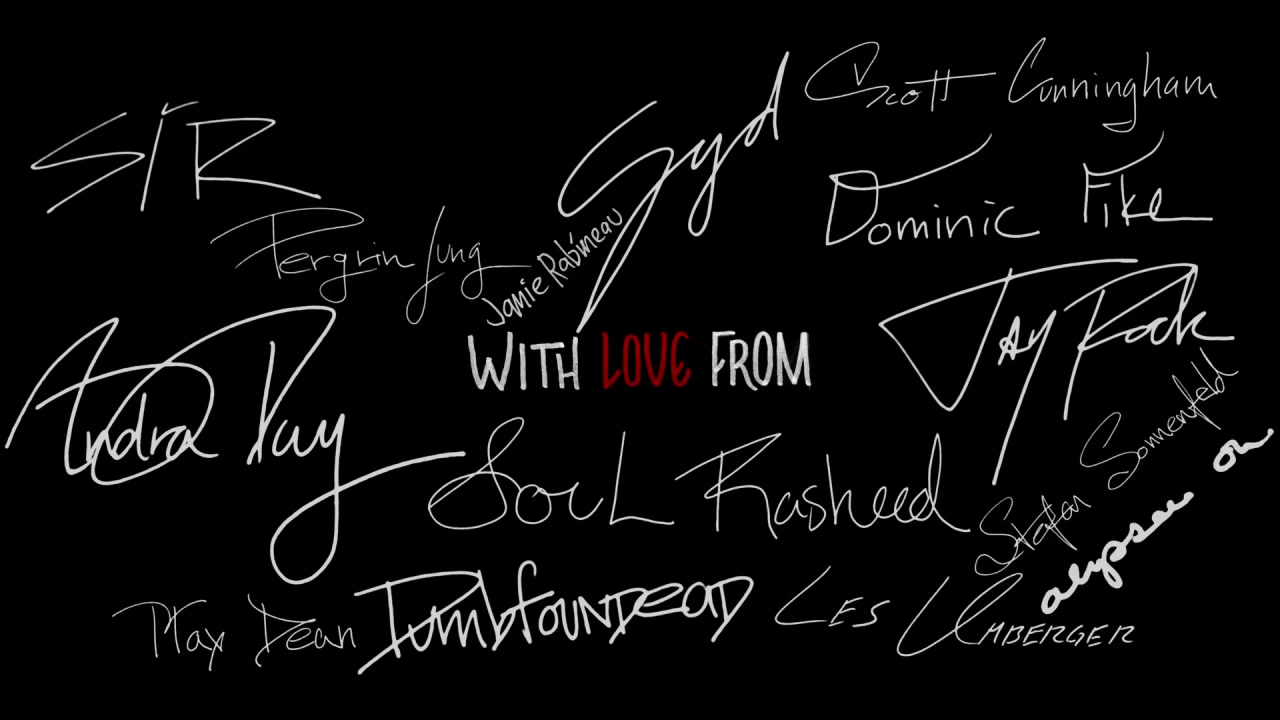 SiR
Gyd
Scott Cunningham
Dominic Fike
Pergrin Jung
Jamie Rabineau
WITH LOVE FROM
Jay Rock
Andra Day
Soul Rasheed
Stefan Sonnenfeld
Max Dean
DumbfounDEAD
LES UMBERGER